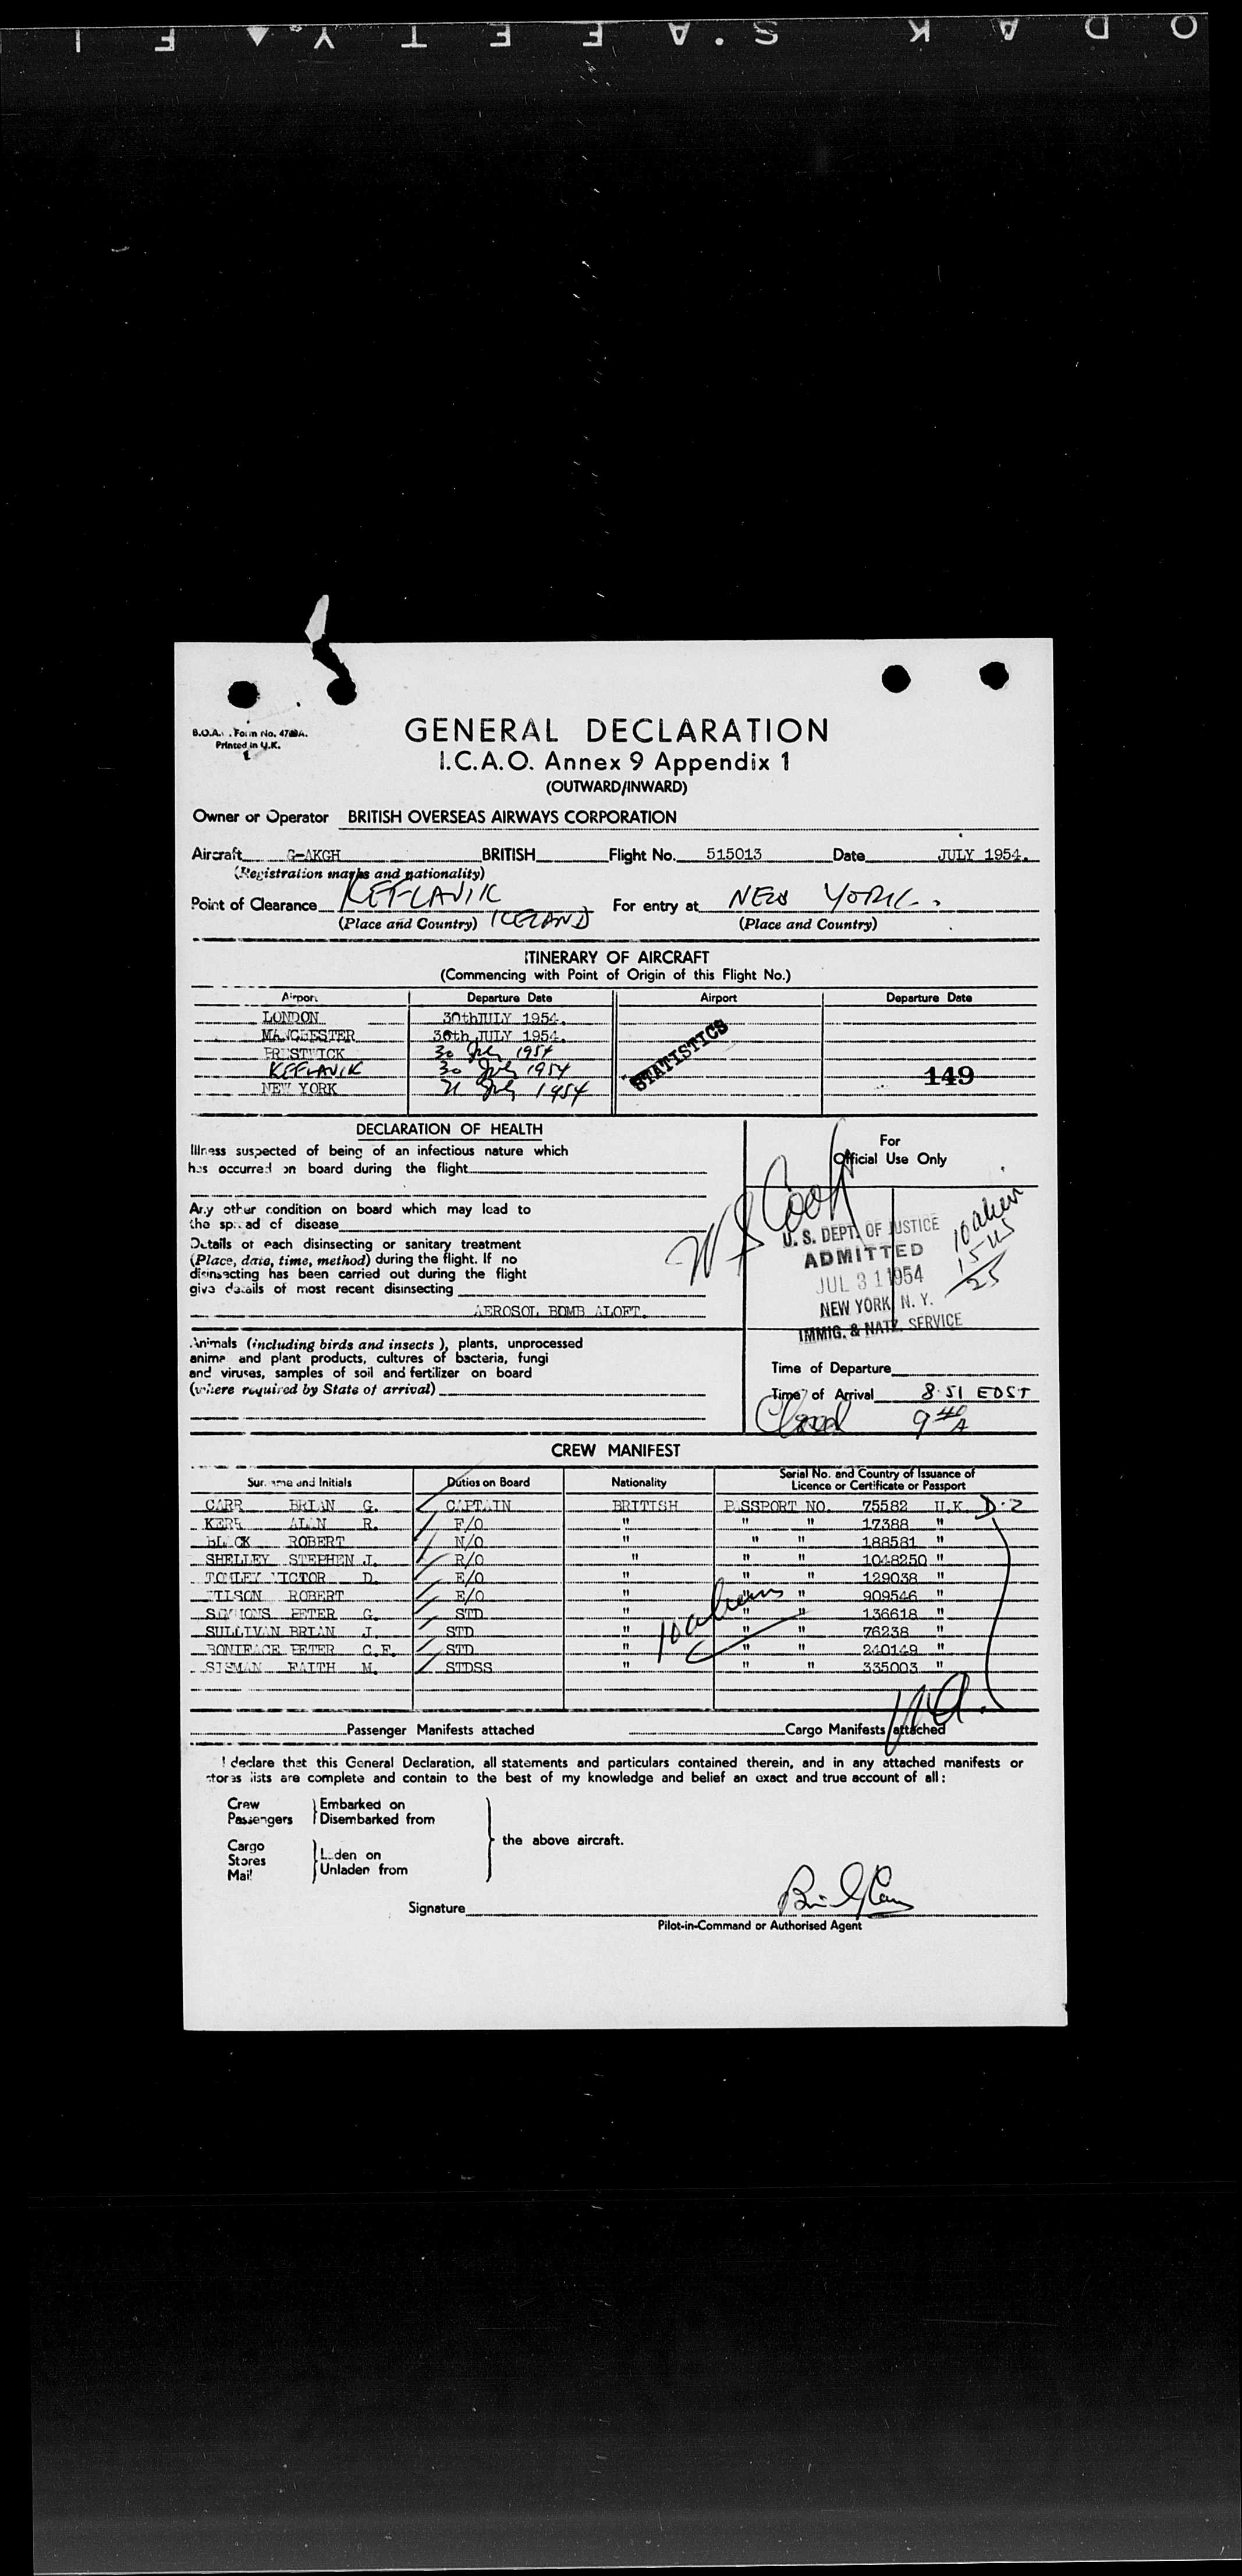 KODAK·SAFETY▲FIL
B.O.A. . Form No. 4788A.
Printed in U.K.
GENERAL DECLARATION
I.C.A.O. Annex 9 Appendix 1
(OUTWARD/INWARD)
Owner or Operator BRITISH OVERSEAS AIRWAYS CORPORATION
Aircraft G-AKGH BRITISH Flight No. 515013 Date JULY 1954.
(Registration marks and nationality)
Point of Clearance KEFLAVIK For entry at NEW YORK.
(Place and Country) ICELAND (Place and Country)
ITINERARY OF AIRCRAFT
(Commencing with Point of Origin of this Flight No.)
Airport Departure Date Airport Departure Date
LONDON 30thJULY 1954.
MANCHESTER 30th JULY 1954.
PRESTWICK 30 July 1954
KEFLAVIK 30 July 1954
NEW YORK 31 July 1954
STATISTICS
149
DECLARATION OF HEALTH
For
Official Use Only
Illness suspected of being of an infectious nature which
has occurred on board during the flight
Any other condition on board which may lead to
the spread of disease
Details of each disinsecting or sanitary treatment
(Place, date, time, method) during the flight. If no
disinsecting has been carried out during the flight
give details of most recent disinsecting
AEROSOL BOMB ALOFT.
W S Cook
U. S. DEPT. OF JUSTICE
ADMITTED
JUL 31 1954
NEW YORK, N. Y.
IMMIG. & NATZ. SERVICE
10 alien
15 US
25
Animals (including birds and insects ), plants, unprocessed
animal and plant products, cultures of bacteria, fungi
and viruses, samples of soil and fertilizer on board
(where required by State of arrival)
Time of Departure
Time of Arrival 8·51 EDST
Closed 9 40 A
CREW MANIFEST
Surname and Initials Duties on Board Nationality Serial No. and Country of Issuance of
Licence or Certificate or Passport
CARR BRIAN G. CAPTAIN BRITISH PASSPORT NO. 75582 U.K. D-2
KERR ALAN R. F/O " " " 17388 "
BLACK ROBERT N/O " " " 188581 "
SHELLEY STEPHEN J. R/O " " " 1048250 "
TOMLEY VICTOR D. E/O " " " 129038 "
WILSON ROBERT E/O " " " 909546 "
SIMMONS PETER G. STD " " " 136618 "
SULLIVAN BRIAN J. STD " " " 76238 "
BONIFACE PETER C.F. STD " " " 240149 "
SISMAN FAITH M. STDSS " " " 335003 "
10 aliens
Passenger Manifests attached Cargo Manifests attached
I declare that this General Declaration, all statements and particulars contained therein, and in any attached manifests or
stores lists are complete and contain to the best of my knowledge and belief an exact and true account of all :
Crew
Passengers
Embarked on
Disembarked from
Cargo
Stores
Mail
Laden on
Unladen from
the above aircraft.
Signature
Pilot-in-Command or Authorised Agent